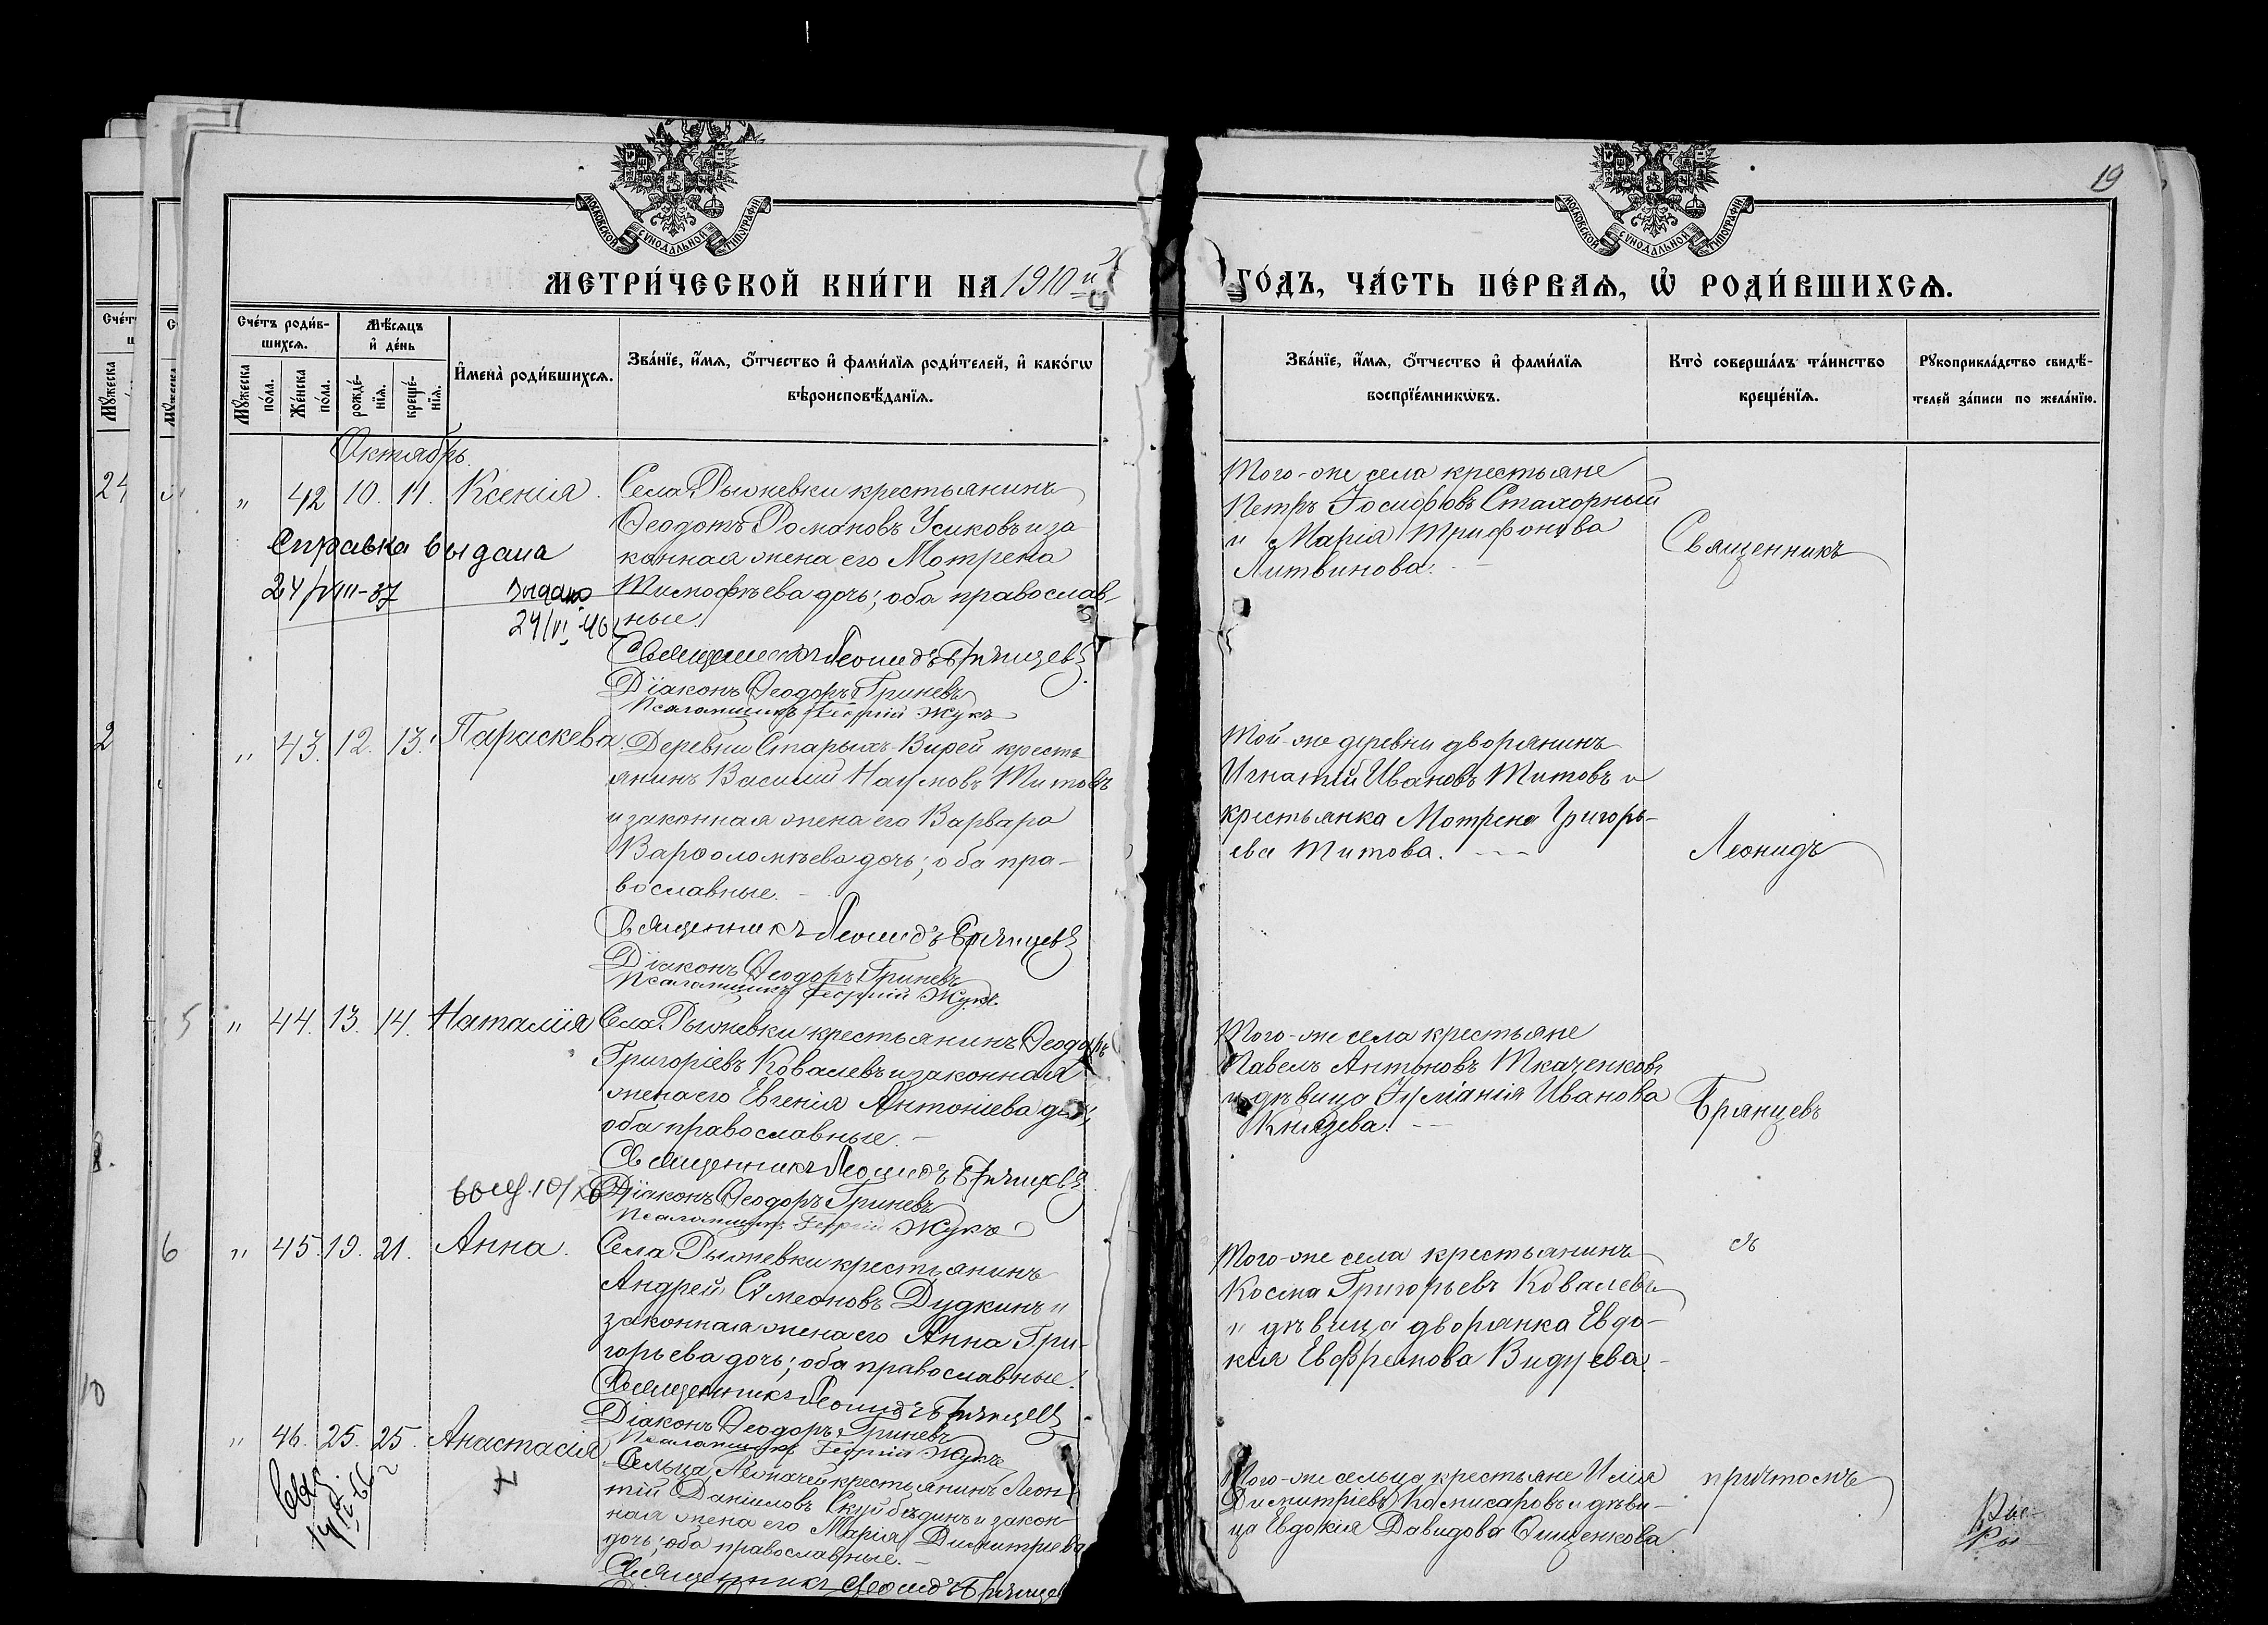 19
МОСКОВСКОЙ СѴНОДАЛЬНОЙ ТИПОГРАФІИ
МОСКОВСКОЙ СѴНОДАЛЬНОЙ ТИПОГРАФІИ
МЕТРИ́ЧЕСКОЙ КНИ́ГИ НА 1910 й
ГО́ДЪ, ЧА́СТЬ ПЕ́РВАѦ, Ѡ҆ РОДИ́ВШИХСѦ.
Сче́тъ роди́в-
шихсѧ.
Мѣ́сѧцъ
и҆ де́нь
Мꙋ́жеска
по́ла.
Же́нска
по́ла.
рожде́-
нїѧ.
креще́-
нїѧ.
И҆мена̀ роди́вшихсѧ.
Зва́нїе, и҆́мѧ, ѻ҆́тчество и҆ фами́лїѧ роди́телей, и҆ како́гѡ
вѣроисповѣ́данїѧ.
Зва́нїе, и҆́мѧ, ѻ҆́тчество и҆ фами́лїѧ
воспрїе́мникѡвъ.
Кто̀ соверша́лъ та́инство
креще́нїѧ.
Рꙋкоприкла́дство свидѣ́-
телей за́писи по жела́нїю.
Октябрь.
" 42 10. 11. Ксенія.
Села Рыжевки крестьянинъ
Ѳеодотъ Романовъ Усиковъ и за
конная жена его Мотрена
Тимофѣева дочь; оба православ-
ные.
Справка выдана
24/VIII-37
Выдано
24/VI 40
Священникъ Леонидъ Брянцевъ
Діаконъ Ѳеодоръ Гриневъ
Псаломщикъ Георгій Жукъ
Того-же села крестьяне
Петръ Іосифовъ Стахорный
и Марія Трифонова
Литвинова.
Священникъ
" 43. 12. 13. Параскева.
Деревни Старыхъ-Вирей кресть
янинъ Василий Наумовъ Титовъ
и законная жена его Варвара
Варѳоломѣева дочь; оба пра-
вославные.
Священникъ Леонидъ Брянцевъ
Діаконъ Ѳеодоръ Гриневъ
Псаломщикъ Георгій Жукъ
Той-же деревни дворянинъ
Игнатій Ивановъ Титовъ и
крестьянка Мотрена Григорь-
ева Титова.
Леонидъ
" 44. 13. 14. Наталія
Села Рыжевки крестьянинъ Ѳеодоръ
Григоріевъ Ковалевъ и законная
жена его Евгенія Антоніева дочь;
оба православные.
Священникъ Леонидъ Брянцевъ
Діаконъ Ѳеодоръ Гриневъ
Псаломщикъ Георгій Жукъ
Того-же села крестьяне
Павелъ Антоновъ Ткаченковъ
и дѣвица Іуліанія Иванова
Князева.
Брянцевъ
" 45. 19. 21. Анна.
Села Рыжевки крестьянинъ
Андрей Сѵмеоновъ Дудкинъ и
законная жена его Анна Гри-
горьева дочь; оба православные.
Священникъ Леонидъ Брянцевъ
Діаконъ Ѳеодоръ Гриневъ
Псаломщикъ Георгій Жукъ
Того-же села крестьянинъ
Косма Григорьевъ Ковалевъ
и дѣвица дворянка Евдо-
кія Евфремова Видуева.
съ
" 46. 25. 25. Анастасія
Сельца крестьянинъ Леон
тій Даніиловъ и закон
ная жена его Марія Димитріева
дочь; оба православные.
Священникъ Леонидъ Брянцевъ
Того-же сельца крестьяне Илія
Димитріевъ Комисаровъ и дѣви-
ца Евдокія Давидова Онищенкова.
причтомъ